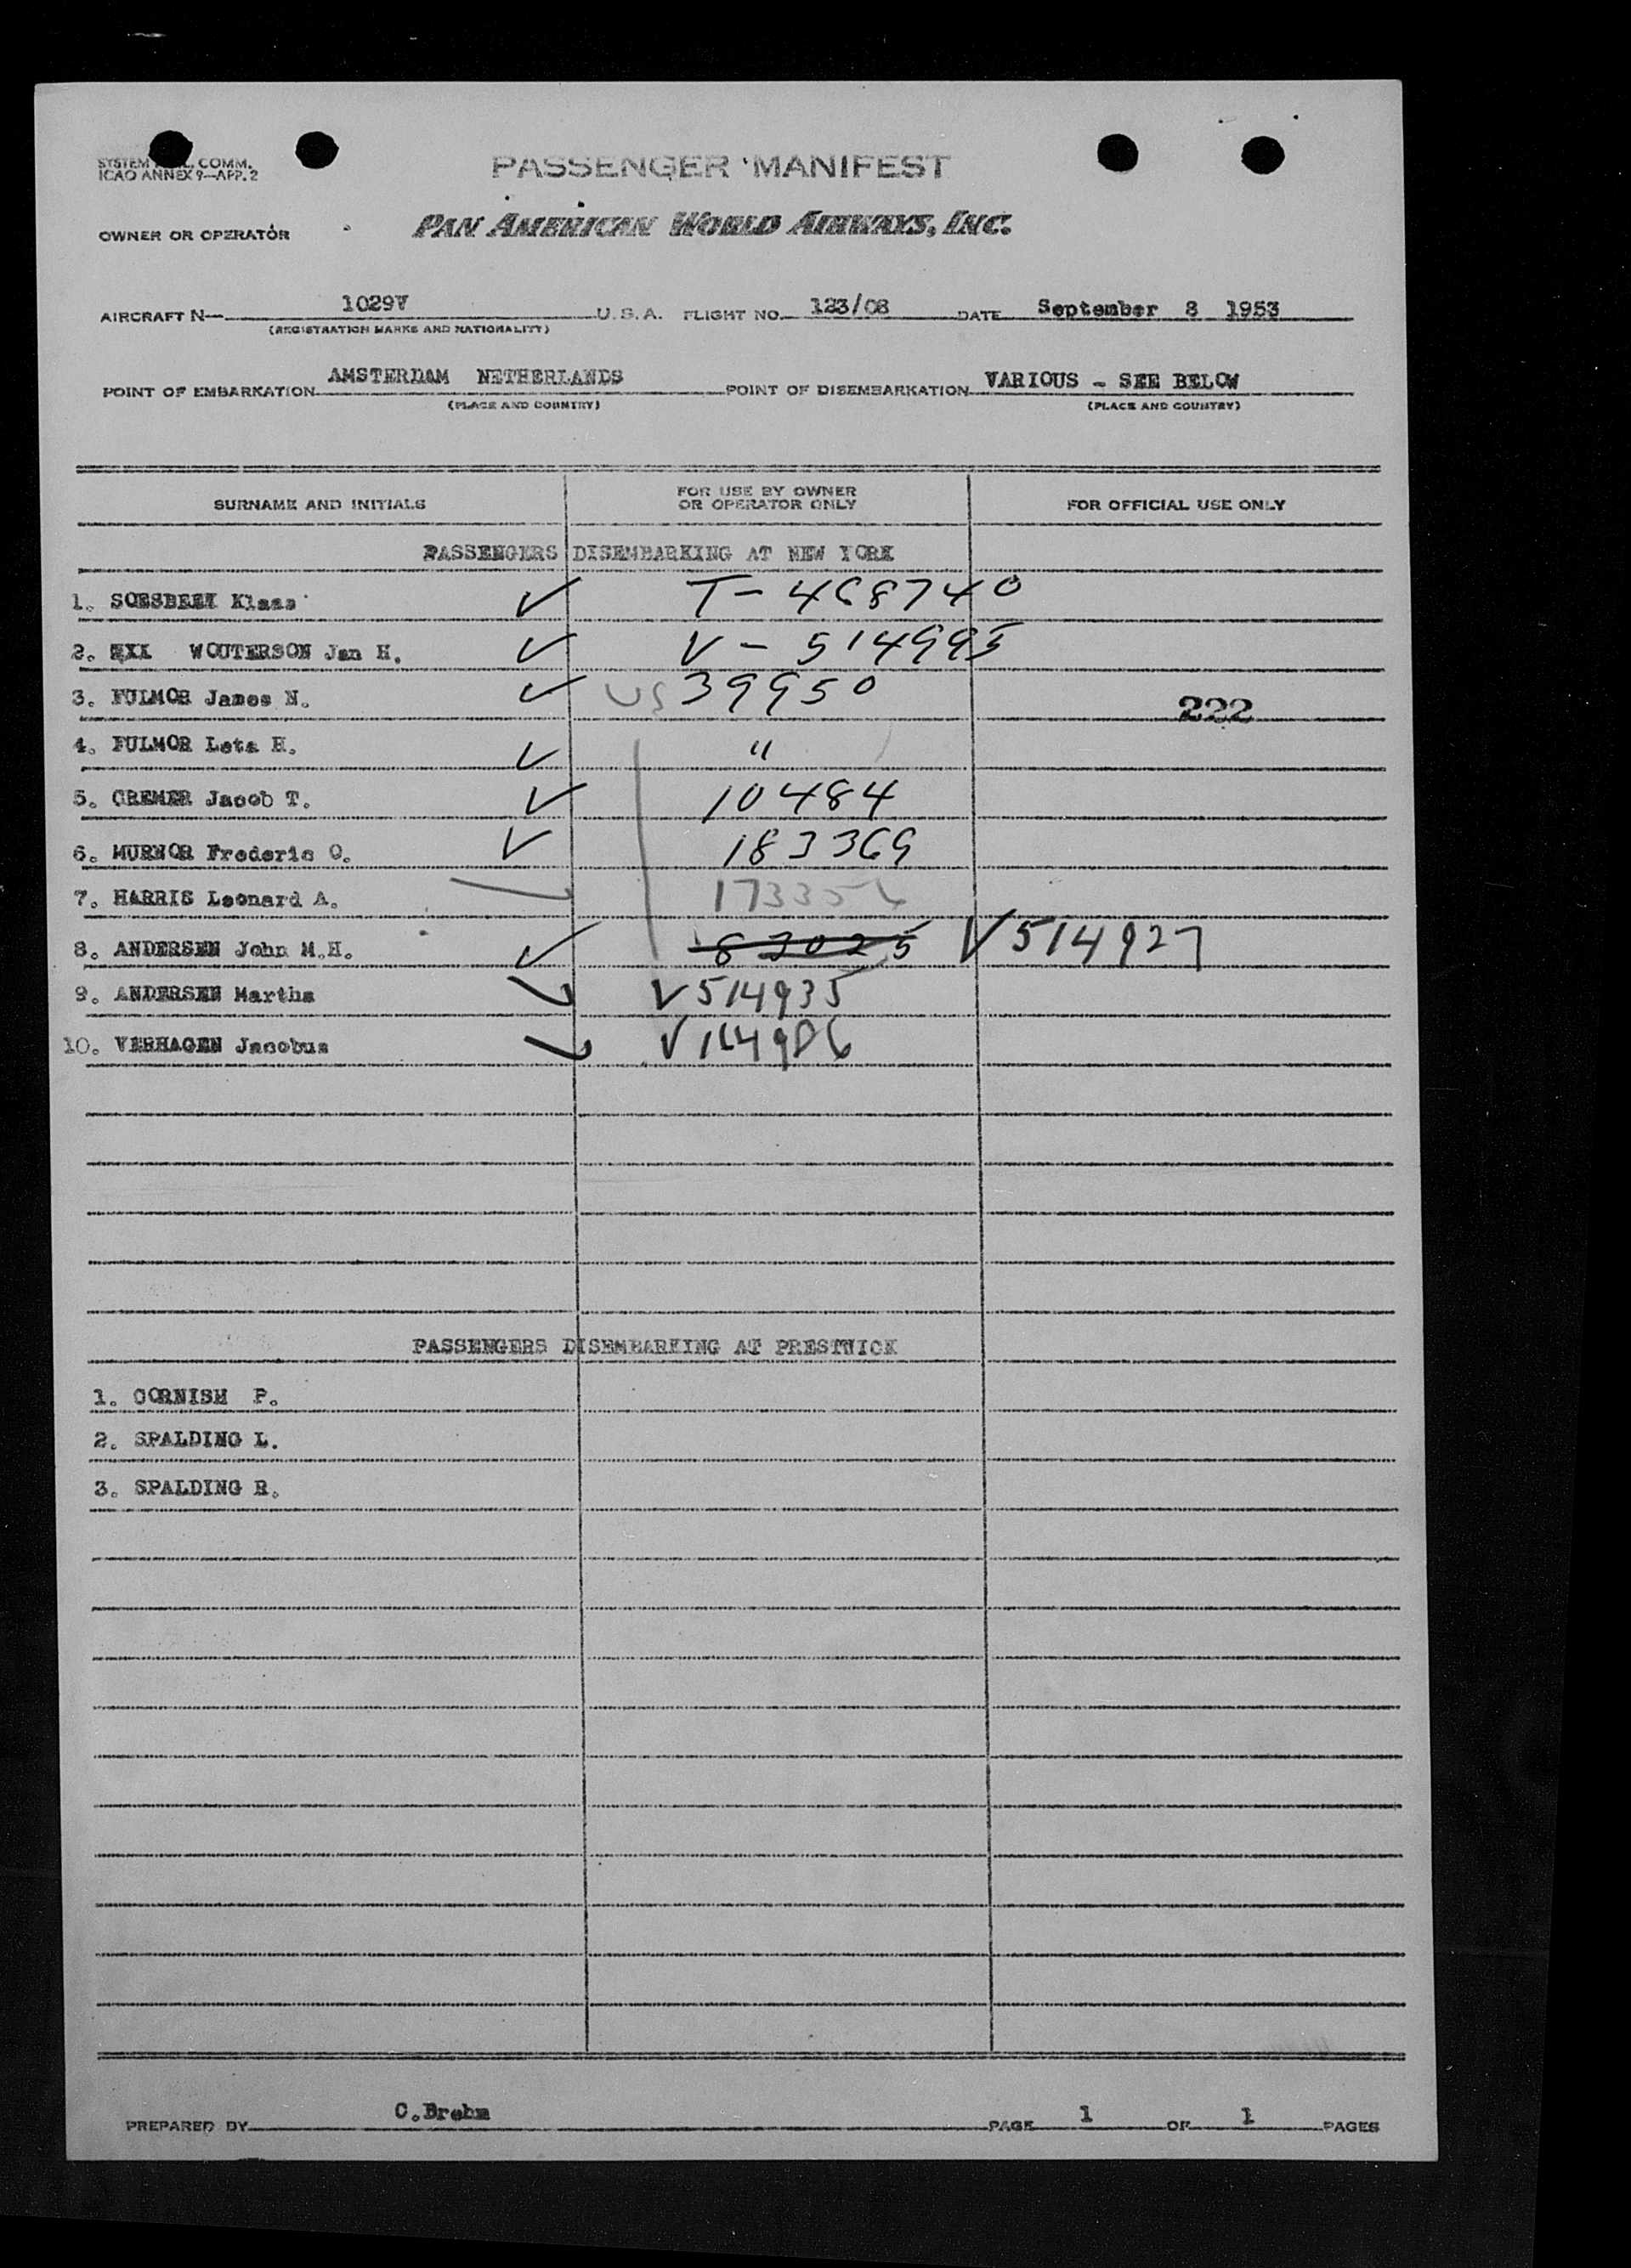 PASSENGER MANIFEST
SYSTEM COMM.
ICAO ANNEX 9—APP. 2
OWNER OR OPERATOR PAN AMERICAN WORLD AIRWAYS, INC.
AIRCRAFT N— 1029V U. S. A. FLIGHT NO. 123/08 DATE September 8 1953
(REGISTRATION MARKS AND NATIONALITY)
POINT OF EMBARKATION AMSTERDAM NETHERLANDS POINT OF DISEMBARKATION VARIOUS - SEE BELOW
(PLACE AND COUNTRY) (PLACE AND COUNTRY)
SURNAME AND INITIALS FOR USE BY OWNER OR OPERATOR ONLY FOR OFFICIAL USE ONLY
PASSENGERS DISEMBARKING AT NEW YORK
1. SOESBEEK Klaas ✓ T-468740
2. WOUTERSON Jan H. ✓ V-514995
3. FULMOR James N. ✓ US 39950 222
4. FULMOR Leta H. ✓ "
5. CREMER Jacob T. ✓ 10484
6. MURNOR Frederic O. ✓ 183369
7. HARRIS Leonard A.
8. ANDERSEN John M.H. ✓ 83025 V514927
9. ANDERSEN Martha ✓ V514935
10. VERHAGEN Jacobus ✓
PASSENGERS DISEMBARKING AT PRESTWICK
1. CORNISH P.
2. SPALDING L.
3. SPALDING R.
PREPARED BY C.Brehm PAGE 1 OF 1 PAGES